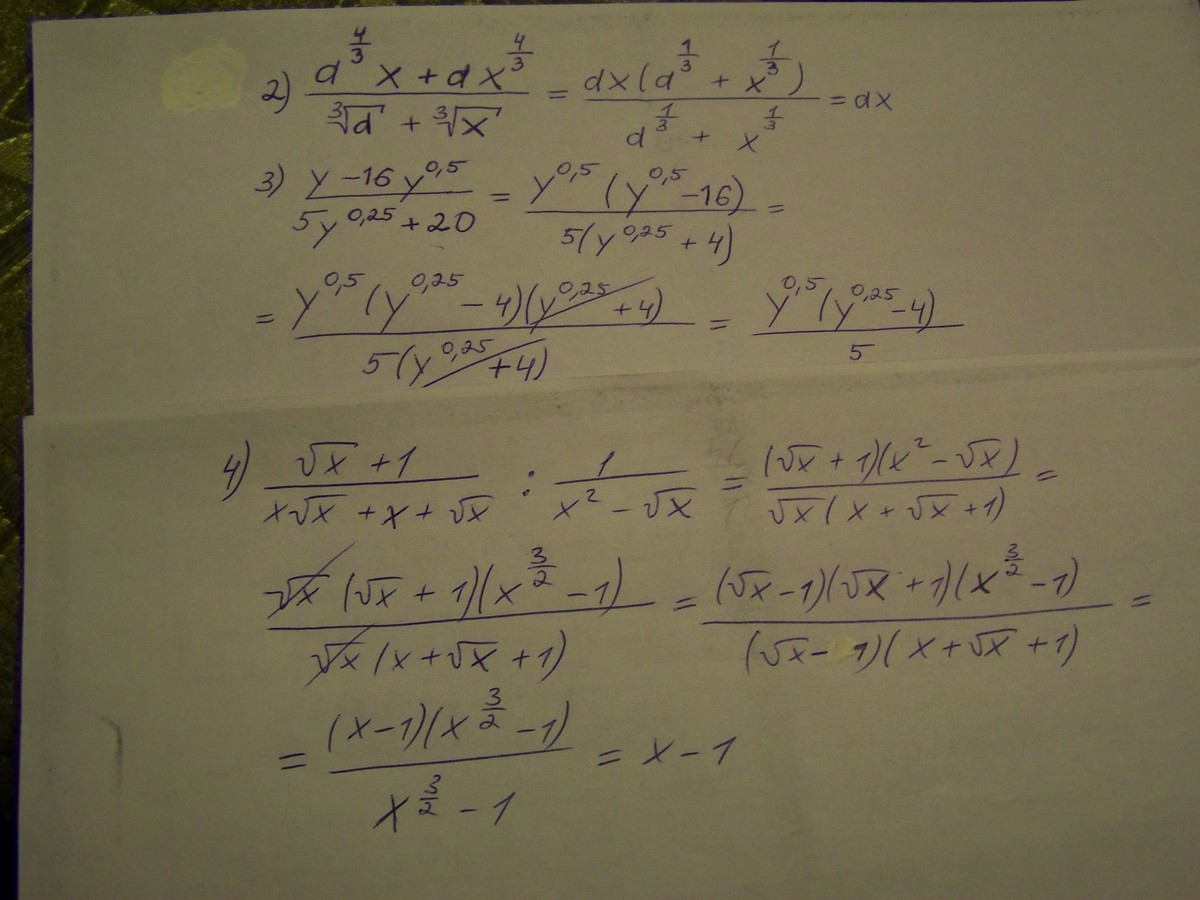 2) (d^(4/3) x + d x^(4/3)) / (∛d + ∛x) = dx(d^(1/3) + x^(1/3)) / (d^(1/3) + x^(1/3)) = dx
3) (y - 16y^0,5) / (5y^0,25 + 20) = y^0,5 (y^0,5 - 16) / 5(y^0,25 + 4) =
= y^0,5 (y^0,25 - 4)(y^0,25 + 4) / 5(y^0,25 + 4) = y^0,5 (y^0,25 - 4) / 5
4) (√x + 1) / (x√x + x + √x) : 1 / (x² - √x) = (√x + 1)(x² - √x) / √x(x + √x + 1) =
√x (√x + 1)(x^(3/2) - 1) / √x (x + √x + 1) = (√x - 1)(√x + 1)(x^(3/2) - 1) / (√x - 1)(x + √x + 1) =
= (x - 1)(x^(3/2) - 1) / (x^(3/2) - 1) = x - 1